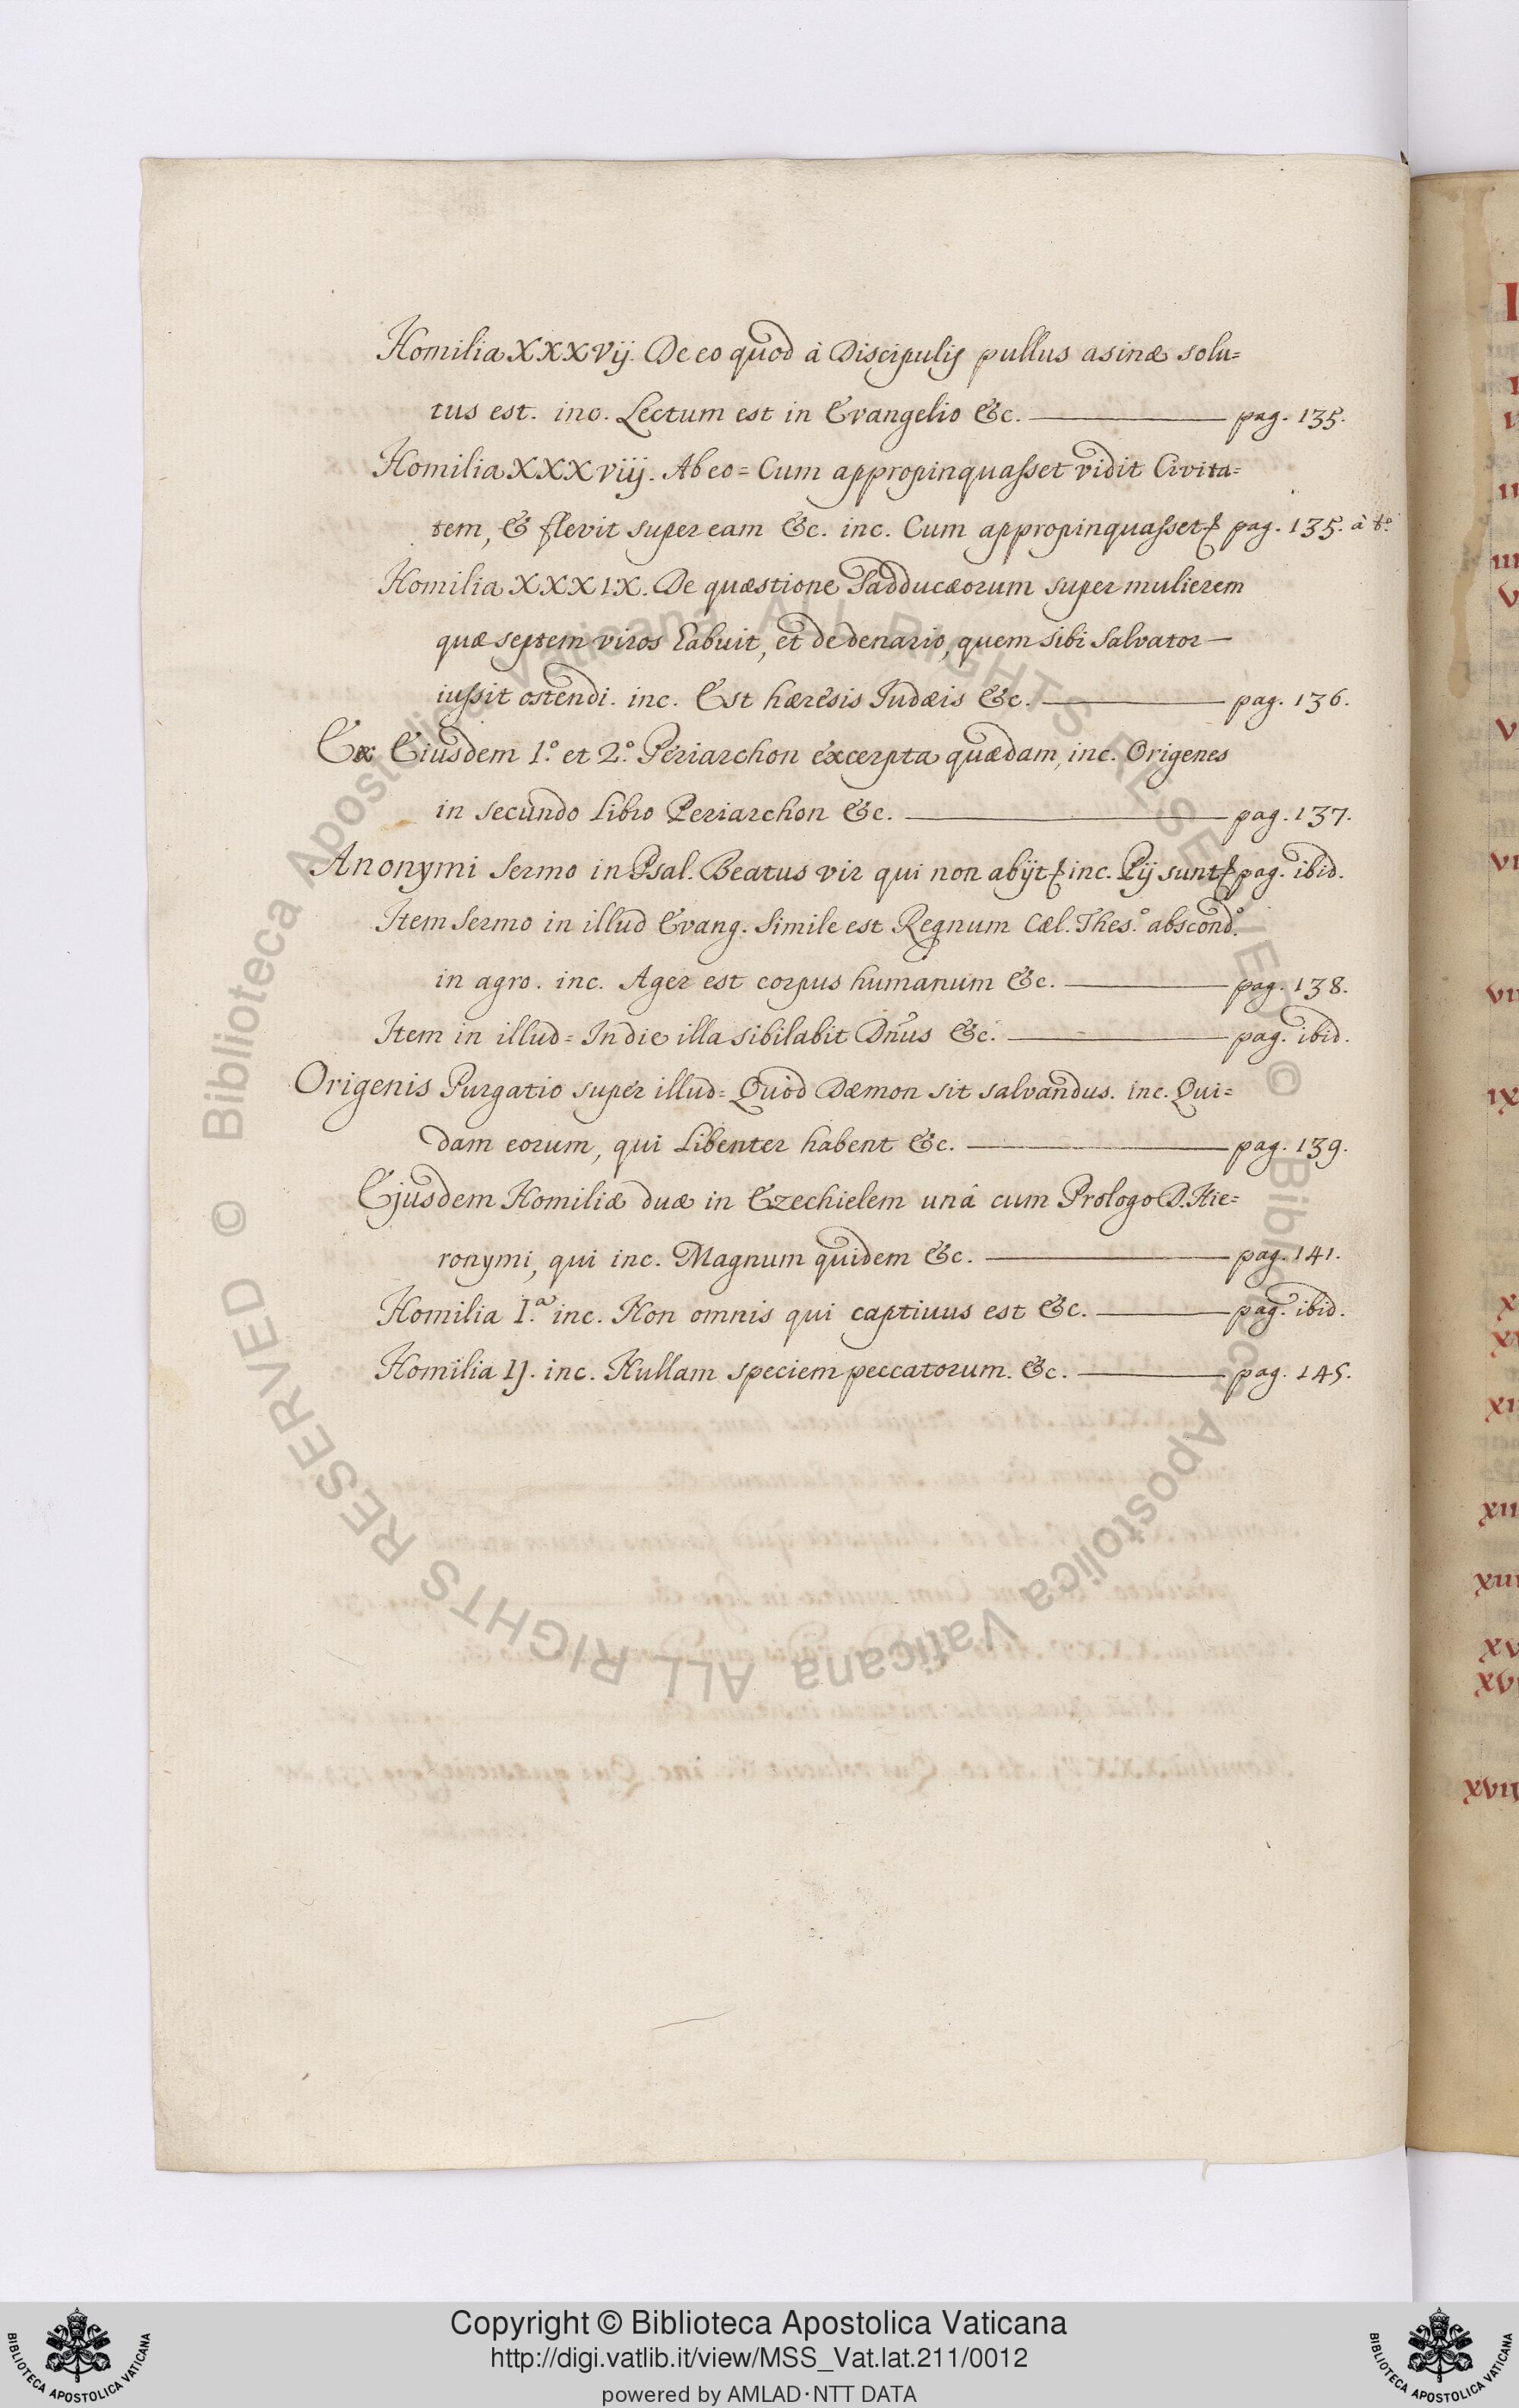 Homilia XXXVij. De eo quod à Discipulis pullus asinæ solu=
tus est. inc. Lectum est in Evangelio &c. pag. 135.
Homilia XXXviij. Ab eo = Cum appropinquasset vidit Civita=
tem, & flevit super eam &c. inc. Cum appropinquasset & pag. 135. à tº.
Homilia XXXIX. De quæstione Sadducæorum super mulierem
quæ septem viros habuit, et de denario, quem sibi Salvator
iussit ostendi. inc. Est hæresis Judæis &c. pag. 136.
Ex Eiusdem 1.º et 2.º Periarchon excerpta quædam, inc. Origenes
in secundo Libro Periarchon &c. pag. 137.
Anonymi Sermo in Psal. Beatus vir qui non abijt & inc. Pij sunt & pag. ibid.
Item Sermo in illud Evang. Simile est Regnum Cæl. Thes.º abscond.º
in agro. inc. Ager est corpus humanum &c. pag. 138.
Item in illud = In die illa sibilabit Dñus &c. pag. ibid.
Origenis Purgatio super illud = Quod Dæmon sit salvandus. inc. Qui=
dam eorum, qui Libenter habent &c. pag. 139.
Ejusdem Homiliæ duæ in Ezechielem unâ cum Prologo D. Hie=
ronymi, qui inc. Magnum quidem &c. pag. 141.
Homilia I.ª inc. Non omnis qui captiuus est &c. pag. ibid.
Homilia IJ. inc. Nullam speciem peccatorum. &c. pag. 145.
© Biblioteca Apostolica Vaticana ALL RIGHTS RESERVED
© Biblioteca Apostolica Vaticana ALL RIGHTS RESERVED
Copyright © Biblioteca Apostolica Vaticana
http://digi.vatlib.it/view/MSS_Vat.lat.211/0012
powered by AMLAD·NTT DATA
BIBLIOTECA APOSTOLICA VATICANA
BIBLIOTECA APOSTOLICA VATICANA